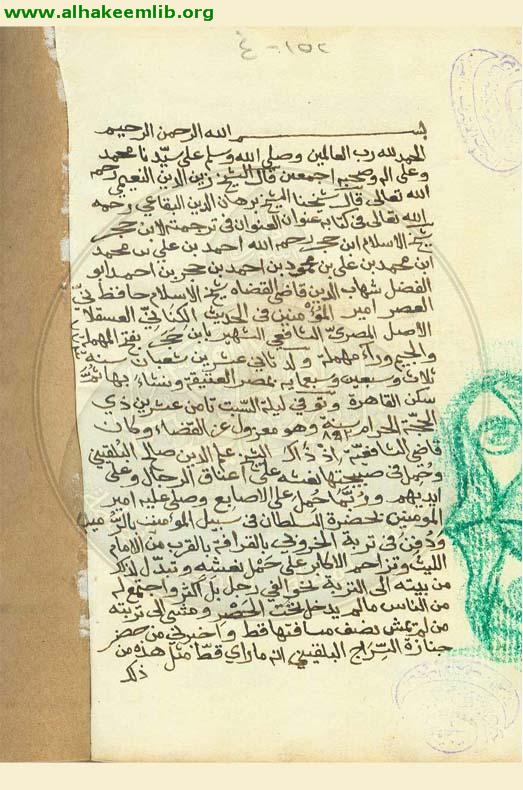 www.alhakeemlib.org
٢٥١-٤
بســـم الله الرحمن الرحيم
الحمد لله رب العالمين وصلى الله وسلم على سيدنا محمد
وعلى اله وصحبه اجمعين قال الشيخ زين الدين النعيمي رحمه
الله تعالى قال شيخنا الشيخ برهان الدين البقاعي رحمه
الله تعالى في كتابه عنوان العنوان في ترجمته لابن حجر
شيخ الاسلام ابن حجر رحمه الله احمد بن علي بن محمد
ابن محمد بن علي بن محمود بن احمد بن حجر بن احمد ابو
الفضل شهاب الدين قاضي القضاه شيخ الاسلام حافظ
العصر امير المؤمنين في الحديث الكناني العسقلا ني
الاصل المصري الشافعي الشهير بابن حجر بفتح المهمله
والجيم وراء مهملة ولد ثاني عشرين شعبان سنة
ثلاث وسبعين وسبعمايه بمصر العتيقة ونشاء بها ثم
سكن القاهرة وتوفي ليلة السبت ثامن عشرين ذي
الحجة الحرام سنة ٨٥٢ وهو معزول عن القضاء وكان
قاضي الشافعية اذ ذاك الشيخ علم الدين صالح البلقيني
وحمل في صبيحتها نعشه على اعناق الرجال وعلى
ايديهم وربما حمل على الاصابع وصلى عليه امير
المومنين بحضرة السلطان في سبيل المؤمنين بالرميلة
ودفن في تربة الخروبي بالقرافة بالقرب من الامام
الليث وتزاحم الاكابر على حمل نعشه وتبدل لذلك
من بيته الى التربة نحو الفي رجل بل اكثر واجتمع له
من الناس ما لم يدخل تحت الحصر ومشى الى تربته
من لم يمش نصف مسافتها قط واخبرني من حضر
جنازة السراج البلقيني انه ما راي قط مثل هذه من
ذلك